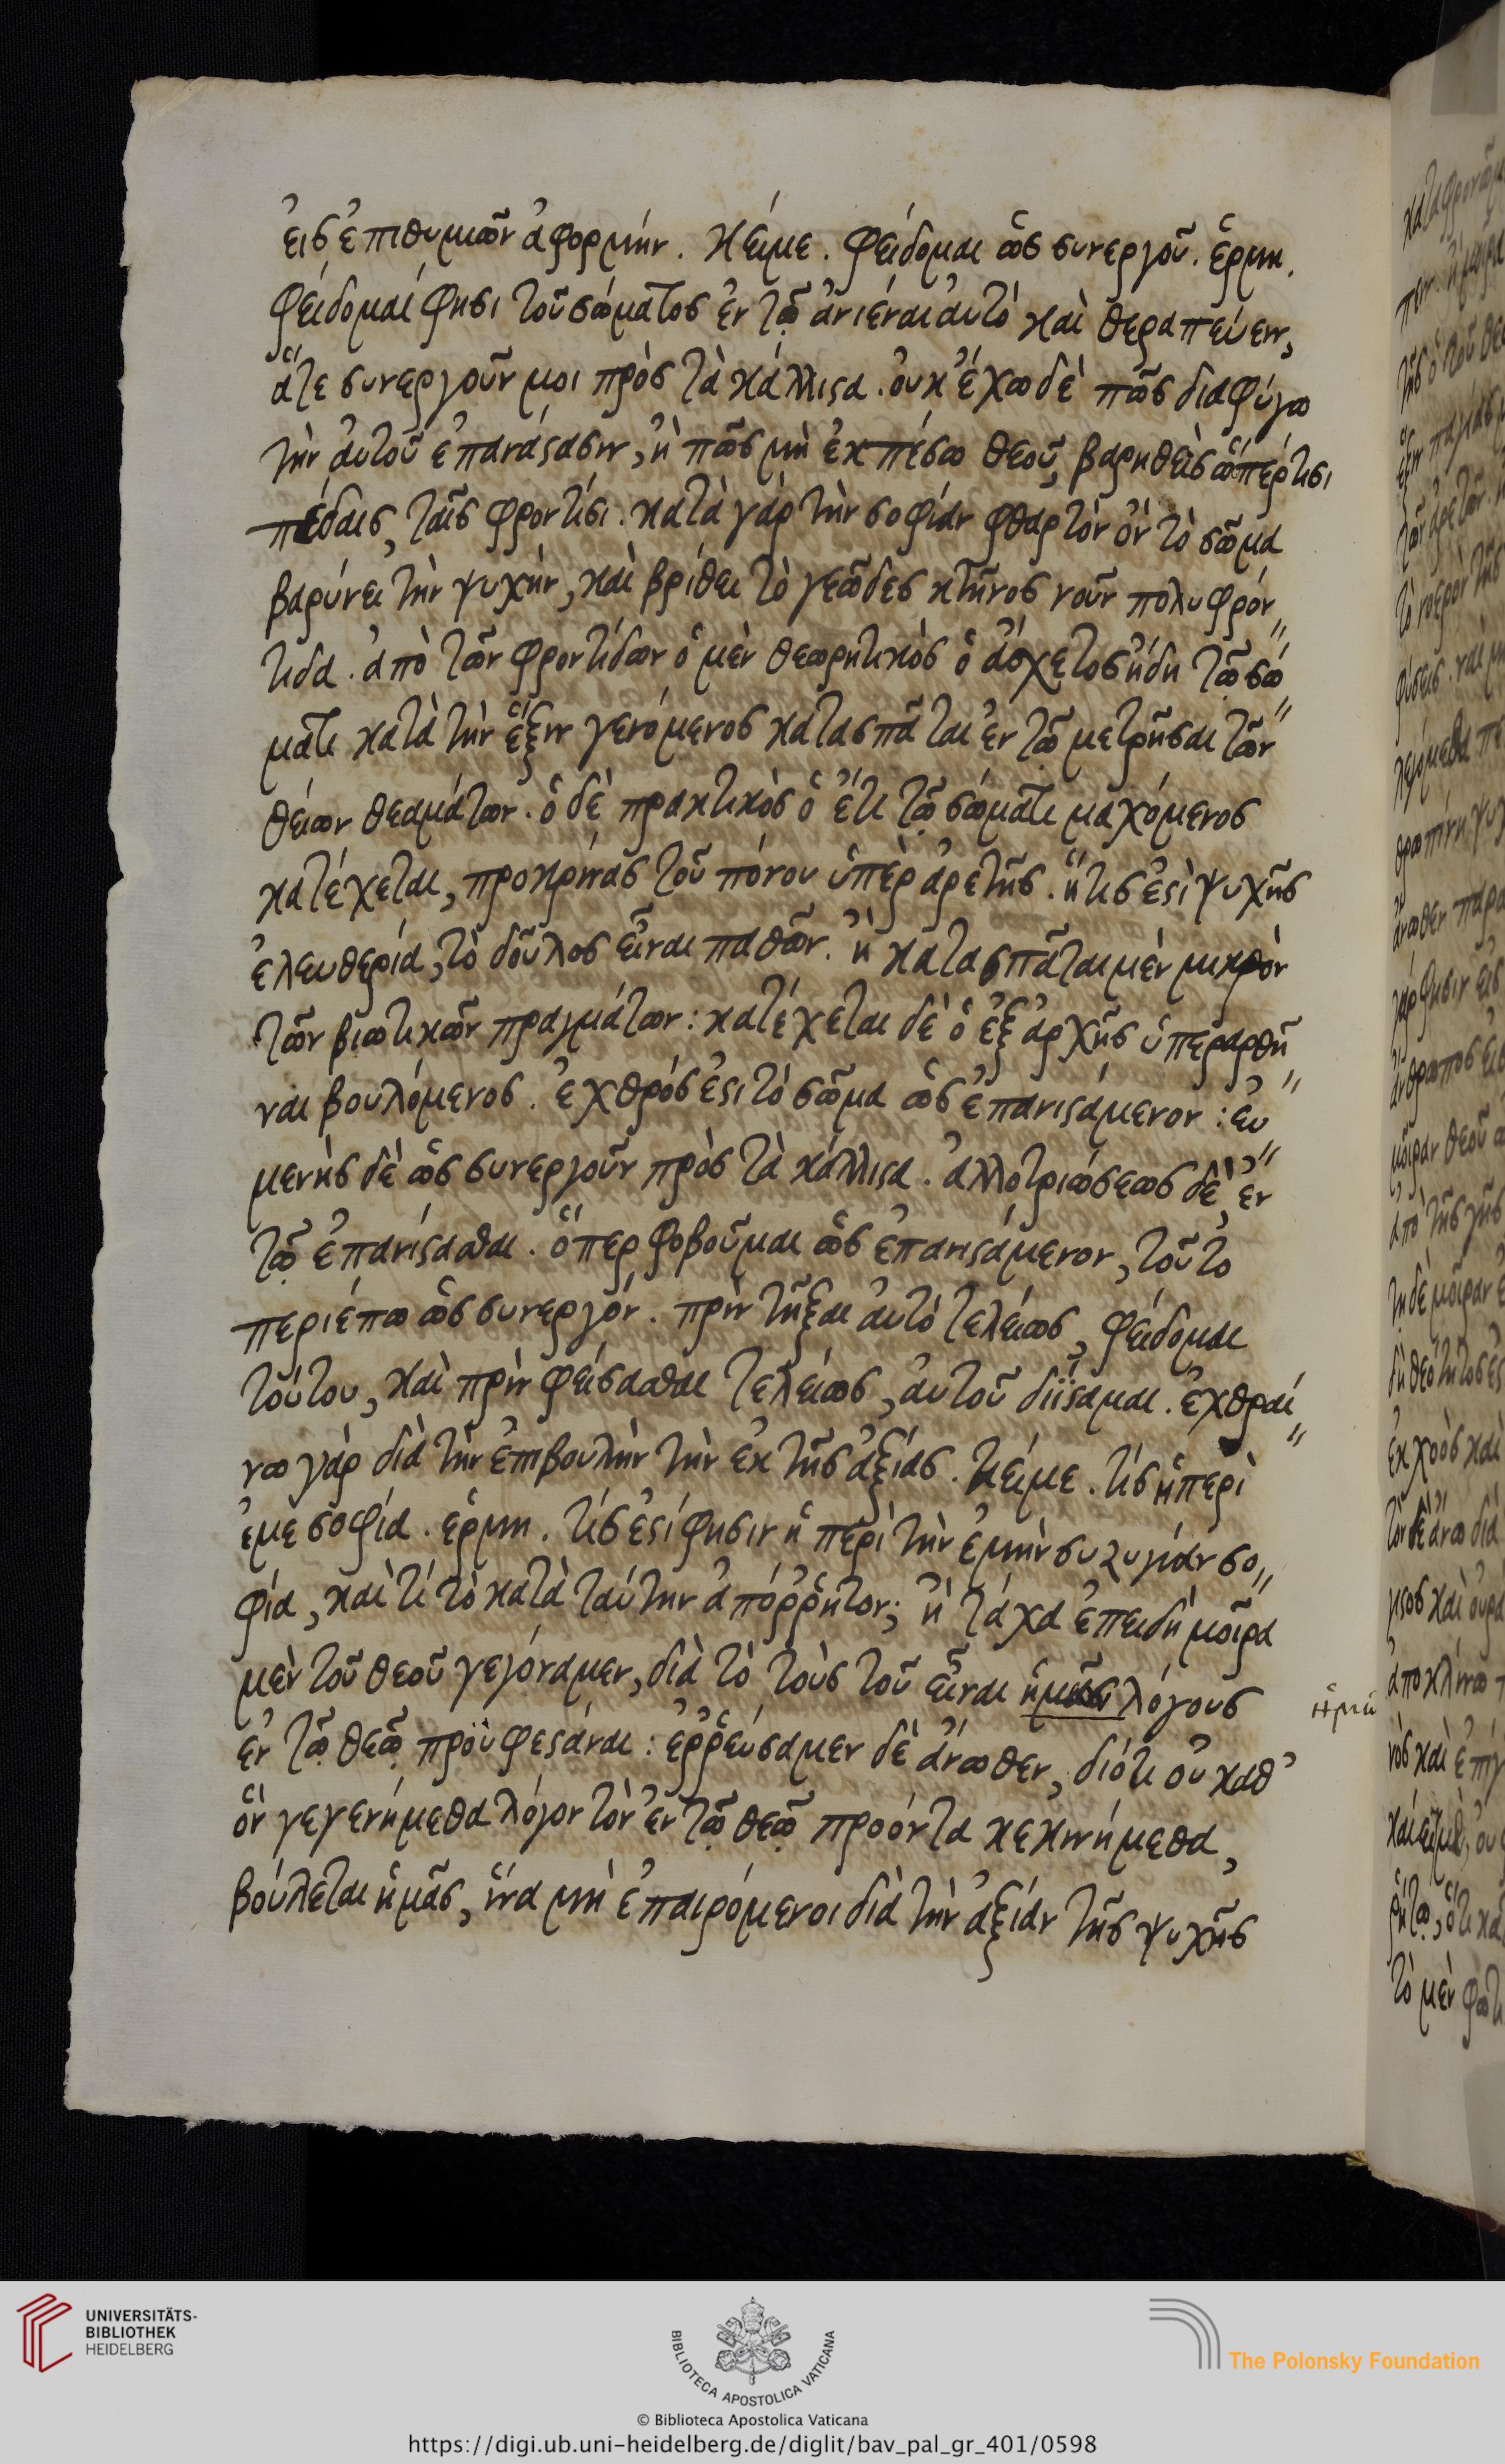 εἰς ἐπιθυμιῶν ἀφορμήν. κείμε. φείδομαι ὡς συνεργοῦ. ἑρμη.
φείδομαί φησι τοῦ σώματος ἐν τῷ ἀνιέναι αὐτὸ καὶ θεραπεύειν,
ἅτε συνεργοῦν μοι πρὸς τὰ κάλλιστα. οὐκ ἔχω δὲ πῶς διαφύγω
τὴν αὐτοῦ ἐπανάστασιν, ἢ πῶς μὴ ἐκπέσω θεοῦ, βαρηθεὶς ὥσπερ τισὶ
πέδαις, ταῖς φροντίσι. κατὰ γὰρ τὴν σοφίαν φθαρτὸν ὂν τὸ σῶμα
βαρύνει τὴν ψυχήν, καὶ βρίθει τὸ γεῶδες κτῆνος νοῦν πολυφρόν
τιδα. ἀπὸ τῶν φροντίδων ὁ μὲν θεωρητικὸς ὁ ἄσχετος ἤδη τῷ σώ
ματι κατὰ τὴν ἕξιν γενόμενος κατασπᾶται ἐν τῷ μετρῆσαι τῶν
θείων θεαμάτων. ὁ δὲ πρακτικὸς ὁ ἔτι τῷ σώματι μαχόμενος
κατέχεται, προκρίνας τοῦ πόνου ὑπὲρ ἀρετῆς. ἥτις ἐστὶ ψυχῆς
ἐλευθερία, τὸ δοῦλος εἶναι παθῶν. ἢ κατασπᾶται μὲν μικρὸν
τῶν βιωτικῶν πραγμάτων: κατέχεται δὲ ὁ ἐξ ἀρχῆς ὑπεραρθῆ
ναι βουλόμενος. ἐχθρός ἐστι τὸ σῶμα ὡς ἐπανιστάμενον: εὐ
μενὴς δὲ ὡς συνεργοῦν πρὸς τὰ κάλλιστα. ἀλλοτριώσεως δὲ, ἐν
τῷ ἐπανίστασθαι. ὅπερ φοβοῦμαι ὡς ἐπανιστάμενον, τοῦτο
περιέπω ὡς συνεργόν. πρὶν τῆξαι αὐτὸ τελείως, φείδομαι
τούτου, καὶ πρὶν φείσασθαι τελείως, αὐτοῦ διΐσταμαι. ἐχθραί
νω γὰρ διὰ τὴν ἐπιβουλὴν τὴν ἐκ τῆς ἀξίας. κείμε. τίς ἡ περὶ
ἐμὲ σοφία. ἑρμη. τίς ἐστί φησιν ἡ περὶ τὴν ἐμὴν συζυγίαν σο
φία, καὶ τί τὸ κατὰ ταύτην ἀπόῤῥητον; ἢ τάχα ἐπειδὴ μοῖρα
μὲν τοῦ θεοῦ γεγόναμεν, διὰ τὸ τοὺς τοῦ εἶναι ἡμᾶς λόγους
ἐν τῷ θεῷ προϋφεστάναι: ἐῤῥεύσαμεν δὲ ἄνωθεν, διότι οὐ καθ᾽
ὃν γεγενήμεθα λόγον τὸν ἐν τῷ θεῷ προόντα κεκινήμεθα,
βούλεται ἡμᾶς, ἵνα μὴ ἐπαιρόμενοι διὰ τὴν ἀξίαν τῆς ψυχῆς
UNIVERSITÄTS-
BIBLIOTHEK
HEIDELBERG
BIBLIOTECA APOSTOLICA VATICANA
The Polonsky Foundation
© Biblioteca Apostolica Vaticana
https://digi.ub.uni-heidelberg.de/diglit/bav_pal_gr_401/0598